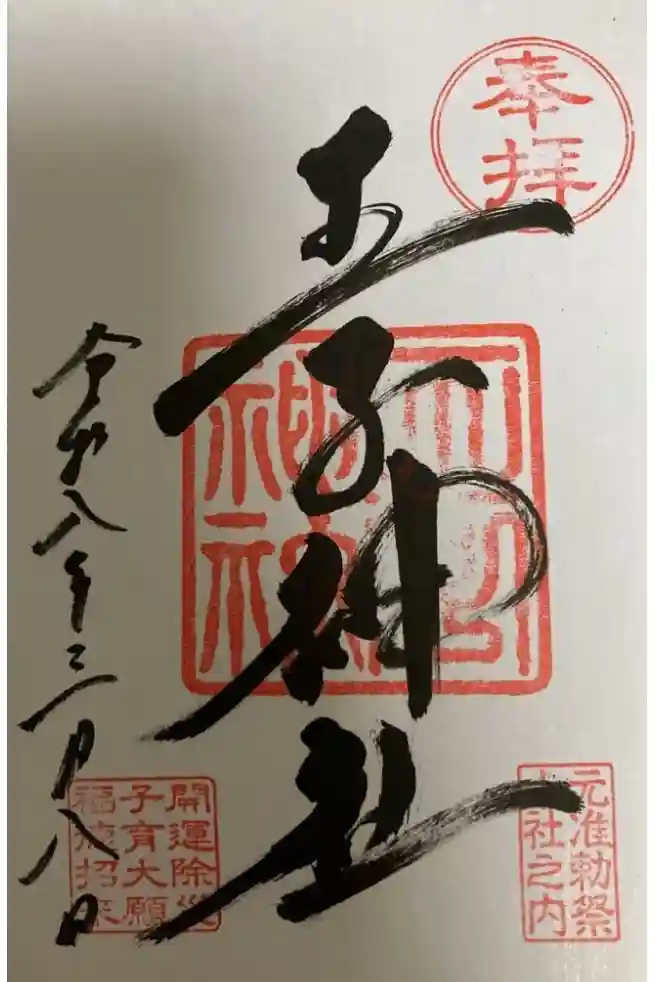 奉拝
王子神社
元准勅祭
十社之内
開運除災
子育大願
福徳招来
令和八年三月八日